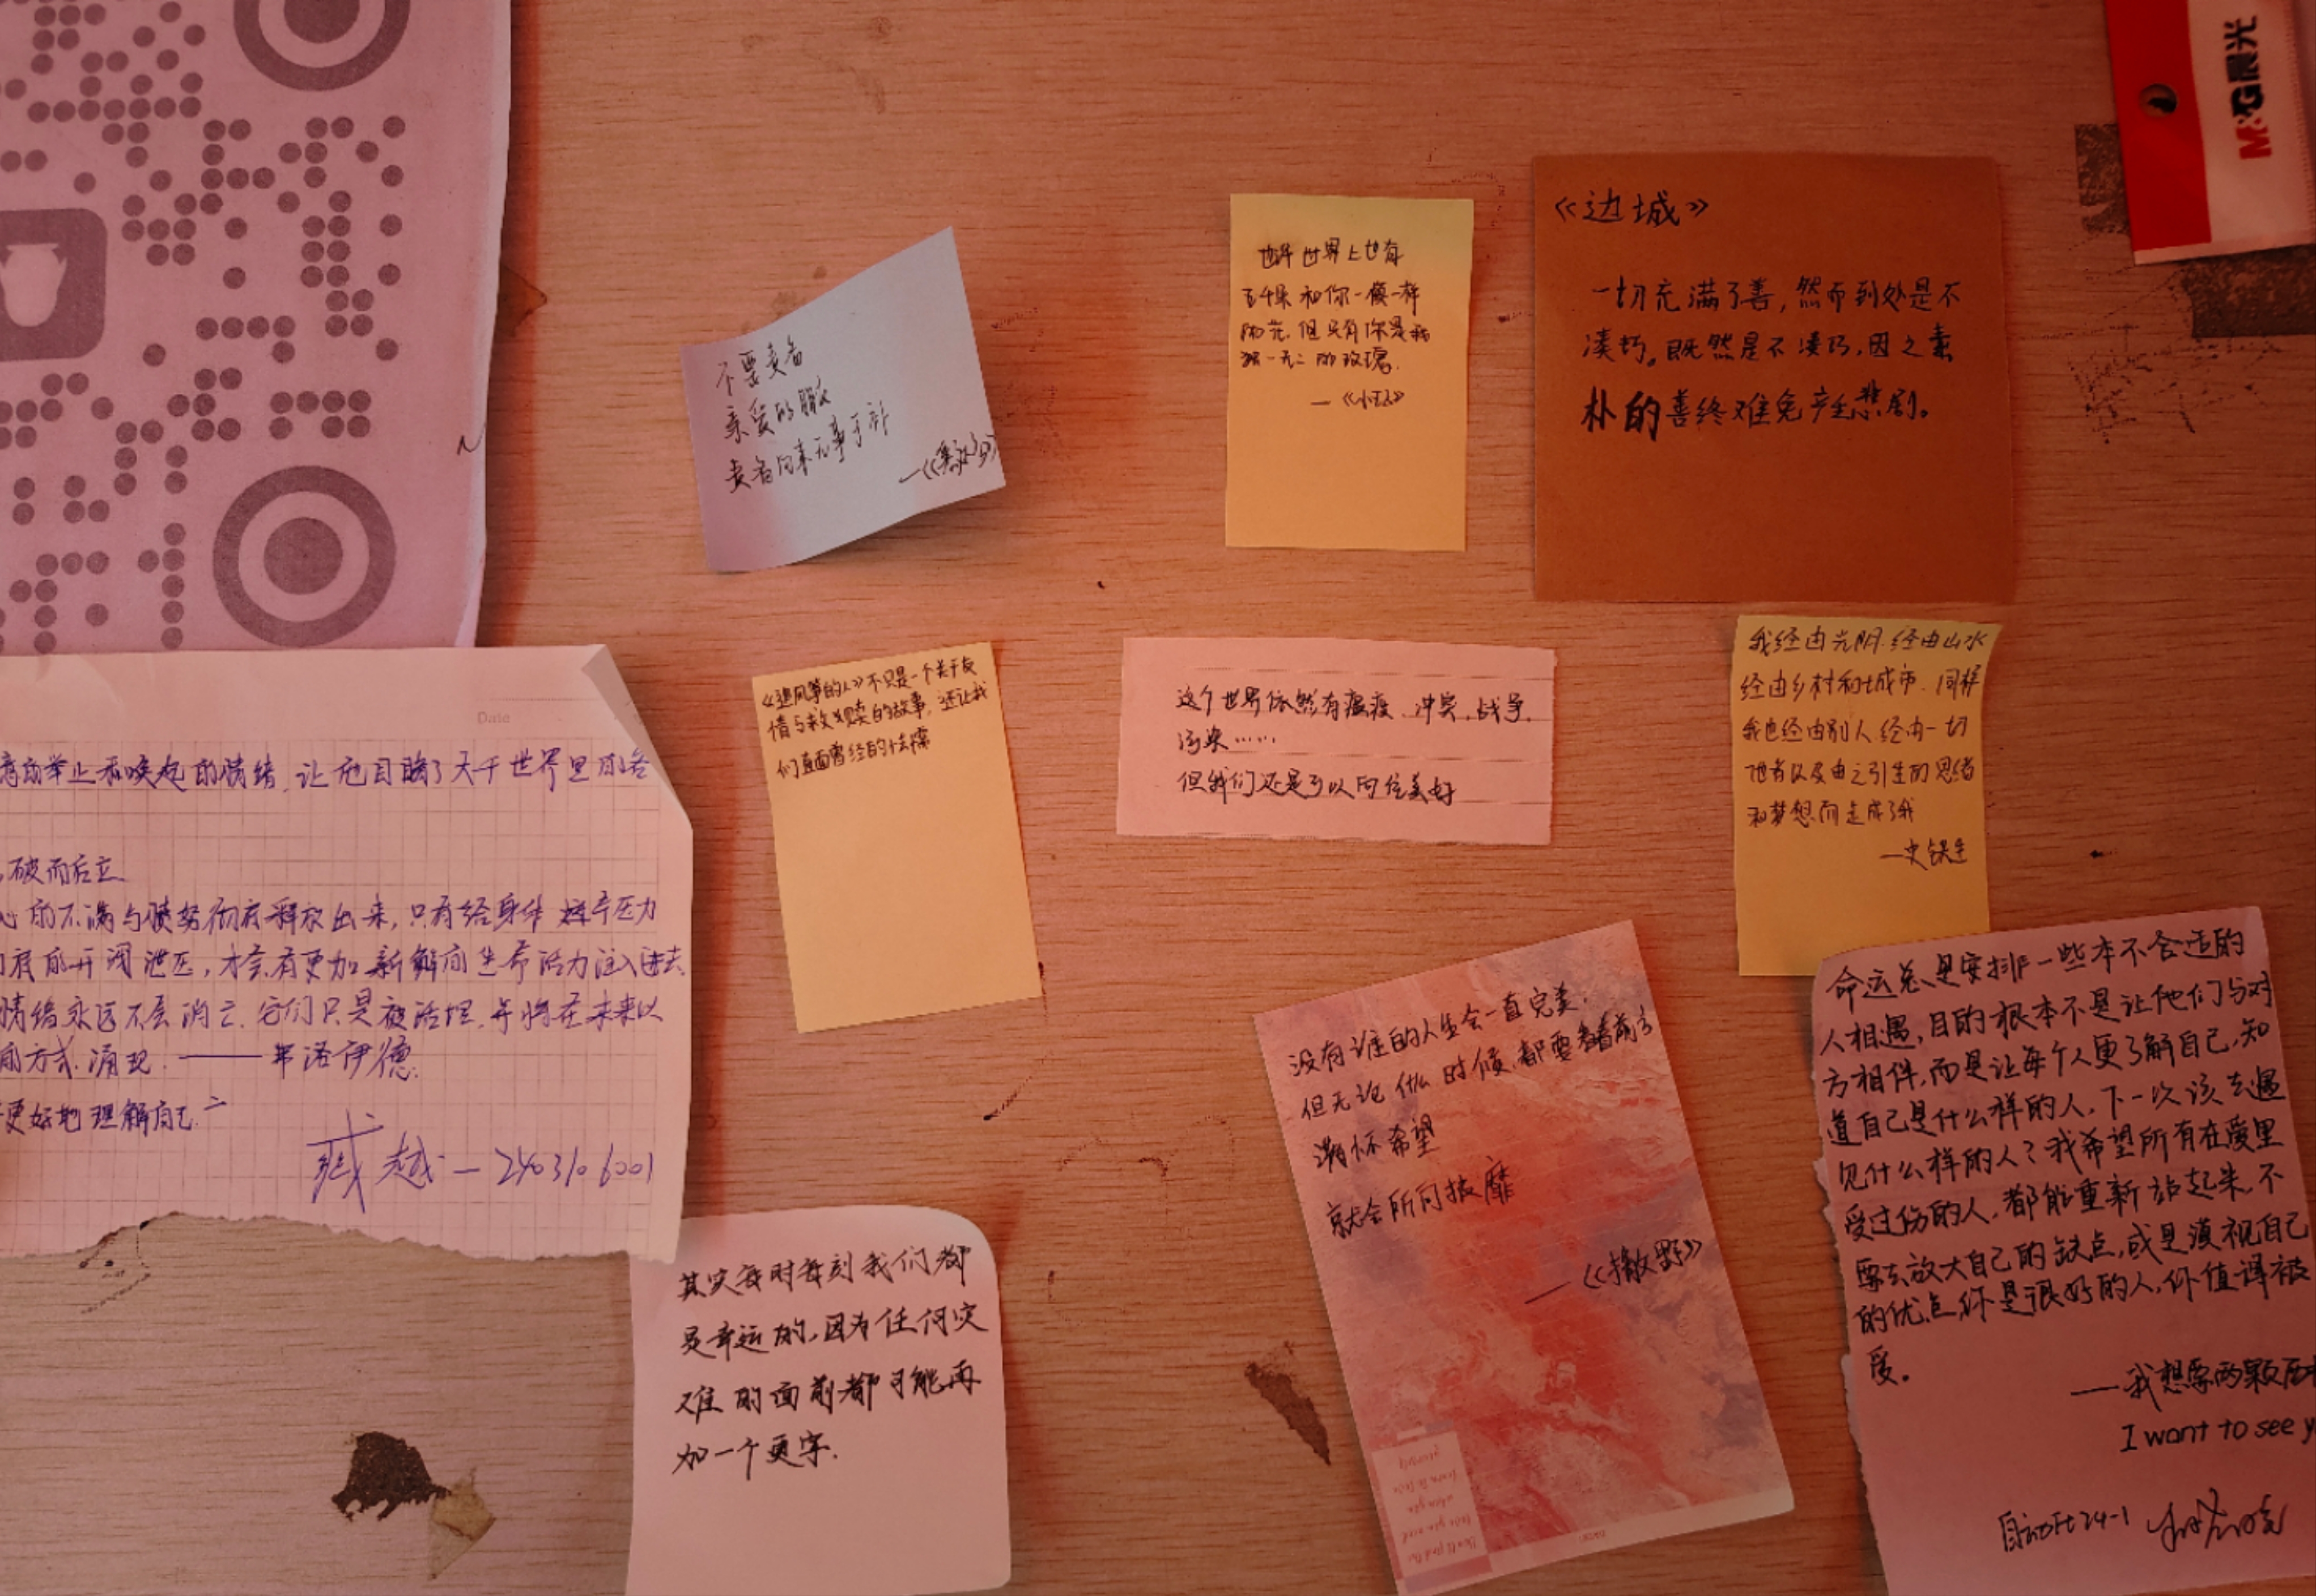 M&G晨光
《边城》
一切充满了善,然而到处是不
凑巧。既然是不凑巧,因之素
朴的善终难免产生悲剧。
也许世界上也有
五千朵和你一模一样
的花,但只有你是我
独一无二的玫瑰.
—《小王子》
不要责备
亲爱的
责备向来无事于补
我经由光阴.经由山水
经由乡村和城市.同样
我也经由别人经由一切
他者以及由之引生的思绪
和梦想而走成了我
—史铁生
《追风筝的人》不只是一个关于友
情与救赎的故事,还让我
们直面曾经的怯懦
这个世界依然有瘟疫、冲突、战争、
污染……
但我们还是可以向往美好
Date
的举止和唤起的情绪,让他目睹了大千世界里的各
破而后立
的不满与愤怒彻底释放出来,只有给身体
开阀泄压,才会有更加新鲜的生命活力注入进去.
情绪永远不会消亡.它们只是被活埋,并将在未来以
的方式涌现.——弗洛伊德
更好地理解自己
臧越—2403106001
没有谁的人生会一直完美.
但无论什么时候,都要看着前方
满怀希望
就会所向披靡
——《撒野》
命运总是安排一些本不合适的
人相遇,目的根本不是让他们与对
方相伴,而是让每个人更了解自己,知
道自己是什么样的人,下一次该去遇
见什么样的人?我希望所有在爱里
受过伤的人,都能重新站起来,不
要去放大自己的缺点,或是漠视自己
的优点,你是很好的人,你值得被
爱。
——我想要两颗西
I want to see y
24-1
其实每时每刻我们都
是幸运的,因为任何灾
难的面前都可能再
加一个更字.